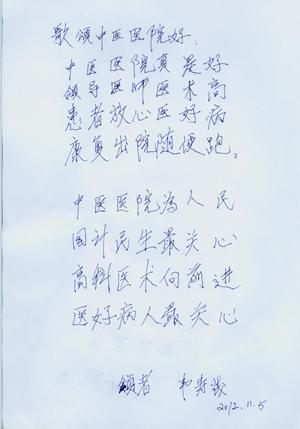 歌颂中医医院好
中医医院真是好
领导医师医术高
患者放心医好病
康复出院随便跑。
中医医院为人民
国计民生最关心
高科医术向前进
医好病人最关心
颂者
2012.11.5